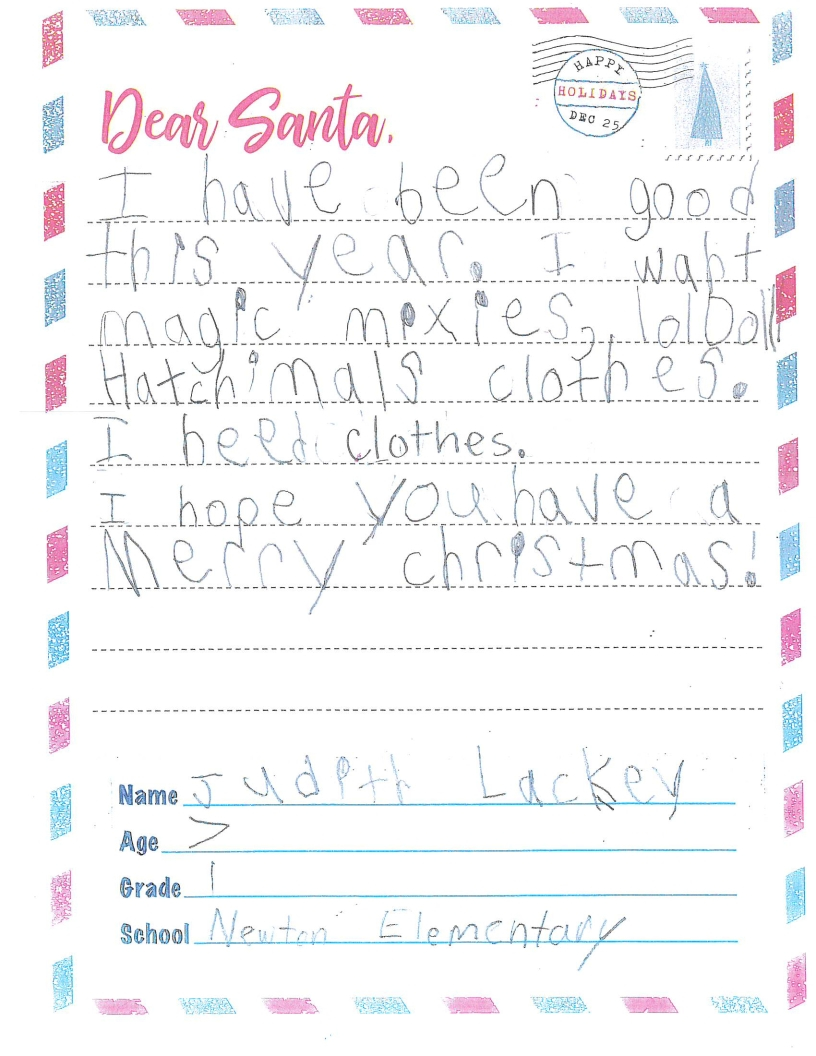 HAPPY
HOLIDAYS
DEC 25
Dear Santa,
I have been good
this year. I want
magic mixies, lolboll
Hatchimals clothes.
I need clothes.
I hope you have a
Merry christmas!
Name Judith Lackey
Age 7
Grade 1
School Newton Elementary